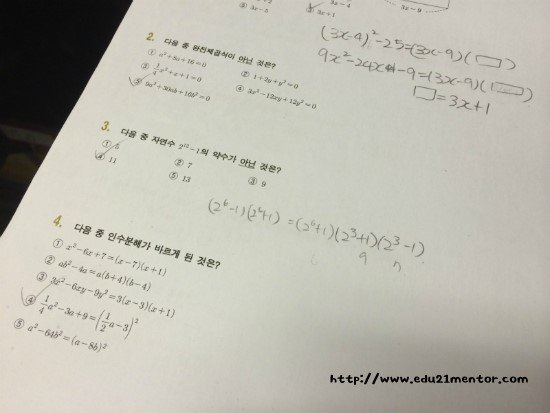 3x-4
3x-9
③ 3x-5
④ 3x+1
2. 다음 중 완전제곱식이 아닌 것은?
① a²+8a+16=0
② 1+2y+y²=0
③ 1/4x²+x+1=0
④ 3x²-12xy+12y²=0
⑤ 9a²+30ab+16b²=0
(3x-4)²-25=(3x-9)(□)
9x²-24x-9=(3x-9)(□)
□=3x+1
3. 다음 중 자연수 2¹²-1의 약수가 아닌 것은?
① 5
② 7
③ 9
④ 11
⑤ 13
(2⁶-1)(2⁶+1)=(2⁶+1)(2³+1)(2³-1)
9 7
4. 다음 중 인수분해가 바르게 된 것은?
① x²-6x+7=(x-7)(x+1)
② ab²-4a=a(b+4)(b-4)
③ 3x²-6xy-9y²=3(x-3)(x+1)
④ 1/4a²-3a+9=(1/2a-3)²
⑤ a²-64b²=(a-8b)²
http://www.edu21mentor.com